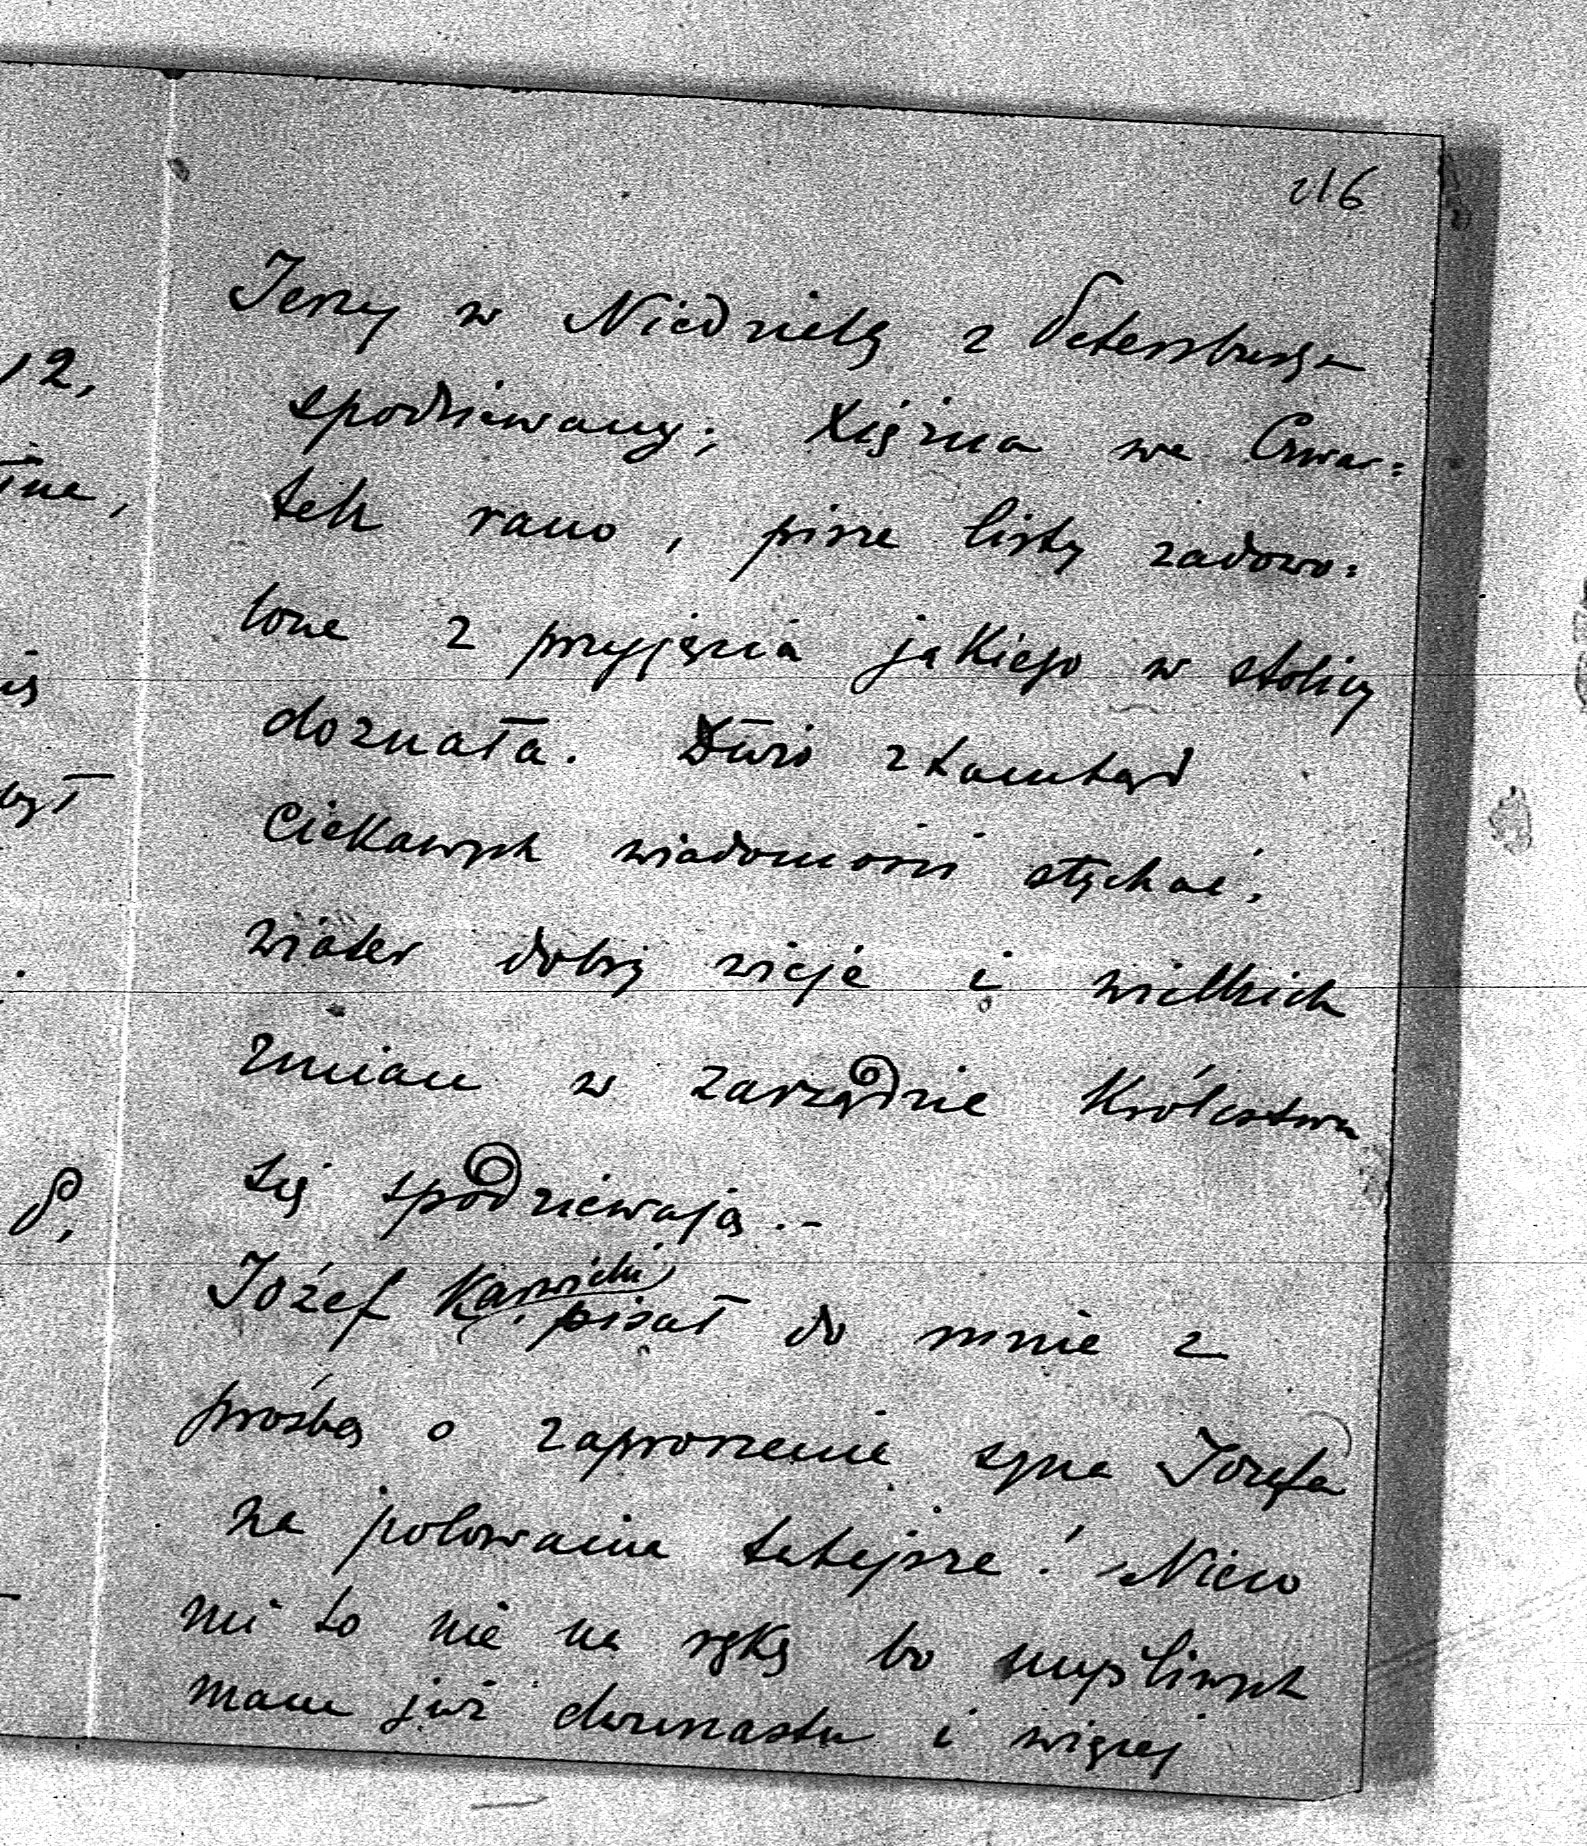 216
Jerzy w Niedzielę z Petersburga
spodziewany; Xiężna we Czwar=
tek rano, pisze listy zadowo=
lone z przyjęcia jakiego w stolicy
doznała. Dużo ztamtąd
ciekawych wiadomości słychać,
wiater dobry wieje i wielkich
zmian w zarządzie Królestwa
się spodziewają.-
Józef Karwicki pisał do mnie z
prośbą o zaproszenie syna Józefa
na polowanie tutejsze!
mi to nie na rękę bo myśliwych
mam już dwunastu i więcej
12,
8,